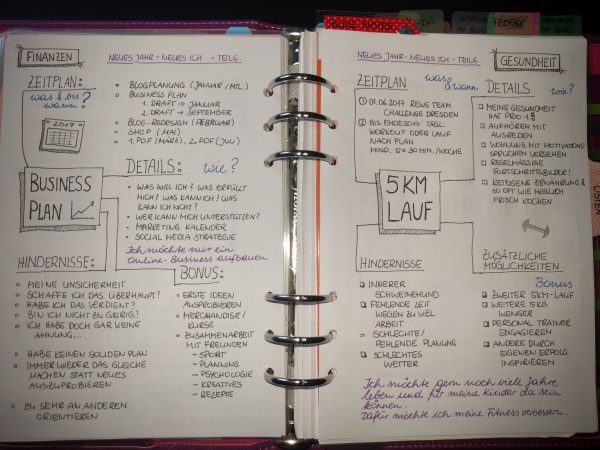 FINANZEN
NEUES JAHR - NEUES ICH - TEIL 6
ZEITPLAN:
was & bis
wann?
2017
BLOGPLANUNG (JANUAR / MRZ.)
BUSINESS PLAN
1. DRAFT → JANUAR
2. DRAFT → SEPTEMBER
BLOG-REDESIGN (FEBRUAR)
SHOP (MAI)
1. PDF (MÄRZ), 2. PDF (JULI)
BUSINESS
PLAN
DETAILS: wie?
WAS WILL ICH? WAS ERFÜLLT
MICH? WAS KANN ICH? WAS
KANN ICH NICHT?
WER KANN MICH UNTERSTÜTZEN?
MARKETING KALENDER
SOCIAL MEDIA STRATEGIE
Ich möchte mir ein
Online-Business aufbauen.
HINDERNISSE:
MEINE UNSICHERHEIT
SCHAFFE ICH DAS ÜBERHAUPT?
HABE ICH DAS VERDIENT?
BIN ICH NICHT ZU GIERIG?
ICH HABE DOCH GAR KEINE
AHNUNG...
HABE KEINEN SOLIDEN PLAN
IMMER WIEDER DAS GLEICHE
MACHEN STATT NEUES
AUSZUPROBIEREN
ZU SEHR AN ANDEREN
ORIENTIEREN
BONUS:
ERSTE IDEEN
AUSPROBIEREN
MERCHANDISE /
KURSE
ZUSAMMENARBEIT
MIT FREUNDEN
~ SPORT
~ PLANNING
~ PSYCHOLOGIE
~ KREATIVES
~ REZEPTE
BLOG NOTES
FILOFAX
MY BLOG
NEUES JAHR - NEUES ICH - TEIL 6
GESUNDHEIT
ZEITPLAN was & wann
① 01.06.2017 REWE TEAM
CHALLENGE DRESDEN
② BIS ENDE 2017 TÄGL.
WORKOUT ODER LAUF
NACH PLAN
MIND. 5 x 30 MIN. / WOCHE
DETAILS wie?
MEINE GESUNDHEIT
HAT PRIO 1
AUFHÖREN MIT
AUSREDEN
WOHNUNG MIT MOTIVATIONS-
SPRÜCHEN VERSEHEN
REGELMÄSSIGE
FORTSCHRITTSBILDER!
KETOGENE ERNÄHRUNG &
SO OFT WIE MÖGLICH
FRISCH KOCHEN
5 KM
LAUF
HINDERNISSE
INNERER
SCHWEINEHUND
FEHLENDE ZEIT
WEGEN ZU VIEL
ARBEIT
SCHLECHTE /
FEHLENDE PLANUNG
SCHLECHTES
WETTER
ZUSÄTZLICHE
MÖGLICHKEITEN
Bonus
ZWEITER 5KM-LAUF
WEITERE 5 KG
WENIGER
PERSONAL TRAINER
ENGAGIEREN
ANDERE DURCH
EIGENEN ERFOLG
INSPIRIEREN
Ich möchte gern noch viele Jahre
leben und für meine Kinder da sein
können.
Dafür möchte ich meine Fitness verbessern.
LISTEN